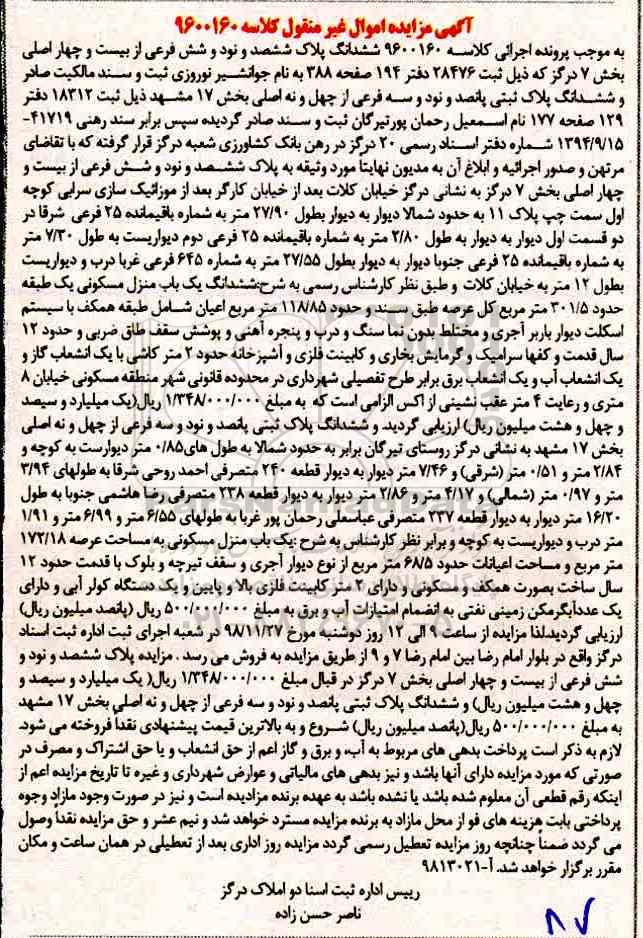 آگهی مزایده اموال غیر منقول کلاسه ۹۶۰۰۱۶۰
به موجب پرونده اجرائی کلاسه ۹۶۰۰۱۶۰ ششدانگ پلاک ششصد و نود و شش فرعی از بیست و چهار اصلی
بخش ۷ درگز که ذیل ثبت ۲۸۴۷۶ دفتر ۱۹۴ صفحه ۳۸۸ به نام جوانشیر نوروزی ثبت و سند مالکیت صادر
و ششدانگ پلاک ثبتی پانصد و نود و سه فرعی از چهل و نه اصلی بخش ۱۷ مشهد ذیل ثبت ۱۸۳۱۲ دفتر
۱۲۹ صفحه ۱۷۷ نام اسمعیل رحمان پورتیرگان ثبت و سند صادر گردیده سپس برابر سند رهنی ۴۱۷۱۹-
۱۳۹۴/۹/۱۵ شماره دفتر اسناد رسمی ۲۰ درگز در رهن بانک کشاورزی شعبه درگز قرار گرفته که با تقاضای
مرتهن و صدور اجرائیه و ابلاغ آن به مدیون نهایتا مورد وثیقه به پلاک ششصد و نود و شش فرعی از بیست و
چهار اصلی بخش ۷ درگز به نشانی درگز خیابان کلات بعد از خیابان کارگر بعد از موزائیک سازی سرابی کوچه
اول سمت چپ پلاک ۱۱ به حدود شمالا دیوار به دیوار بطول ۲۷/۹۰ متر به شماره باقیمانده ۲۵ فرعی شرقا در
دو قسمت اول دیوار به دیوار به طول ۲/۸۰ متر به شماره باقیمانده ۲۵ فرعی دوم دیواریست به طول ۷/۳۰ متر
به شماره باقیمانده ۲۵ فرعی جنوبا دیوار به دیوار بطول ۲۷/۵۵ متر به شماره ۶۴۵ فرعی غربا درب و دیواریست
بطول ۱۲ متر به خیابان کلات و طبق نظر کارشناس رسمی به شرح:ششدانگ یک باب منزل مسکونی یک طبقه
حدود ۳۰۱/۵ متر مربع کل عرصه طبق سند و حدود ۱۱۸/۸۵ متر مربع اعیان شامل طبقه همکف با سیستم
اسکلت دیوار باربر آجری و مختلط بدون نما سنگ و درب و پنجره آهنی و پوشش سقف طاق ضربی و حدود ۱۲
سال قدمت و کفها سرامیک و گرمایش بخاری و کابینت فلزی و آشپزخانه حدود ۲ متر کاشی با یک انشعاب گاز و
یک انشعاب آب و یک انشعاب برق برابر طرح تفصیلی شهرداری در محدوده قانونی شهر منطقه مسکونی خیابان ۸
متری و رعایت ۴ متر عقب نشینی از اکس الزامی است که به مبلغ ۱/۳۴۸/۰۰۰/۰۰۰ ریال(یک میلیارد و سیصد
و چهل و هشت میلیون ریال) ارزیابی گردید. و ششدانگ پلاک ثبتی پانصد و نود و سه فرعی از چهل و نه اصلی
بخش ۱۷ مشهد به نشانی درگز روستای تیرگان برابر به حدود شمالا به طول های۰/۸۵ متر دیواریست به کوچه و
۲/۸۴ متر و ۰/۵۱ متر (شرقی) و ۷/۴۶ متر دیوار به دیوار قطعه ۲۴۰ متصرفی احمد روحی شرقا به طولهای ۳/۹۴
متر و ۰/۹۷ متر (شمالی) و ۴/۱۷ متر و ۲/۸۶ متر دیوار به دیوار قطعه ۲۳۸ متصرفی رضا هاشمی جنوبا به طول
۱۶/۲۰ متر دیوار به دیوار قطعه ۲۳۷ متصرفی عباسعلی رحمان پور غربا به طولهای ۶/۵۵ متر و ۶/۹۹ متر و ۱/۹۱
متر درب و دیواریست به کوچه و برابر نظر کارشناس به شرح :یک باب منزل مسکونی به مساحت عرصه ۱۷۲/۱۸
متر مربع و مساحت اعیانات حدود ۶۸/۵ متر مربع از نوع دیوار آجری و سقف تیرچه و بلوک با قدمت حدود ۱۲
سال ساخت بصورت همکف و مسکونی و دارای ۲ متر کابینت فلزی بالا و پایین و یک دستگاه کولر آبی و دارای
یک عددآبگرمکن زمینی نفتی به انضمام امتیازات آب و برق به مبلغ ۵۰۰/۰۰۰/۰۰۰ ریال (پانصد میلیون ریال)
ارزیابی گردید.لذا مزایده از ساعت ۹ الی ۱۲ روز دوشنبه مورخ ۹۸/۱۱/۲۷ در شعبه اجرای ثبت اداره ثبت اسناد
درگز واقع در بلوار امام رضا بین امام رضا ۷ و ۹ از طریق مزایده به فروش می رسد . مزایده پلاک ششصد و نود و
شش فرعی از بیست و چهار اصلی بخش ۷ درگز در قبال مبلغ ۱/۳۴۸/۰۰۰/۰۰۰ ریال( یک میلیارد و سیصد و
چهل و هشت میلیون ریال) و ششدانگ پلاک ثبتی پانصد و نود و سه فرعی از چهل و نه اصلی بخش ۱۷ مشهد
به مبلغ ۵۰۰/۰۰۰/۰۰۰ ریال(پانصد میلیون ریال) شروع و به بالاترین قیمت پیشنهادی نقدا فروخته می شود.
لازم به ذکر است پرداخت بدهی های مربوط به آب، و برق و گاز اعم از حق انشعاب و یا حق اشتراک و مصرف در
صورتی که مورد مزایده دارای آنها باشد و نیز بدهی های مالیاتی و عوارض شهرداری و غیره تا تاریخ مزایده اعم از
اینکه رقم قطعی آن معلوم شده باشد یا نشده باشد به عهده برنده مزادیده است و نیز در صورت وجود مازاد وجوه
پرداختی بابت هزینه های فو از محل مازاد به برنده مزایده مسترد خواهد شد و نیم عشر و حق مزایده نقدا وصول
می گردد ضمنا چنانچه روز مزایده تعطیل رسمی گردد مزایده روز اداری بعد از تعطیلی در همان ساعت و مکان
مقرر برگزار خواهد شد. آ-۹۸۱۳۰۲۱
رییس اداره ثبت اسنا دو املاک درگز
ناصر حسن زاده
۸۷